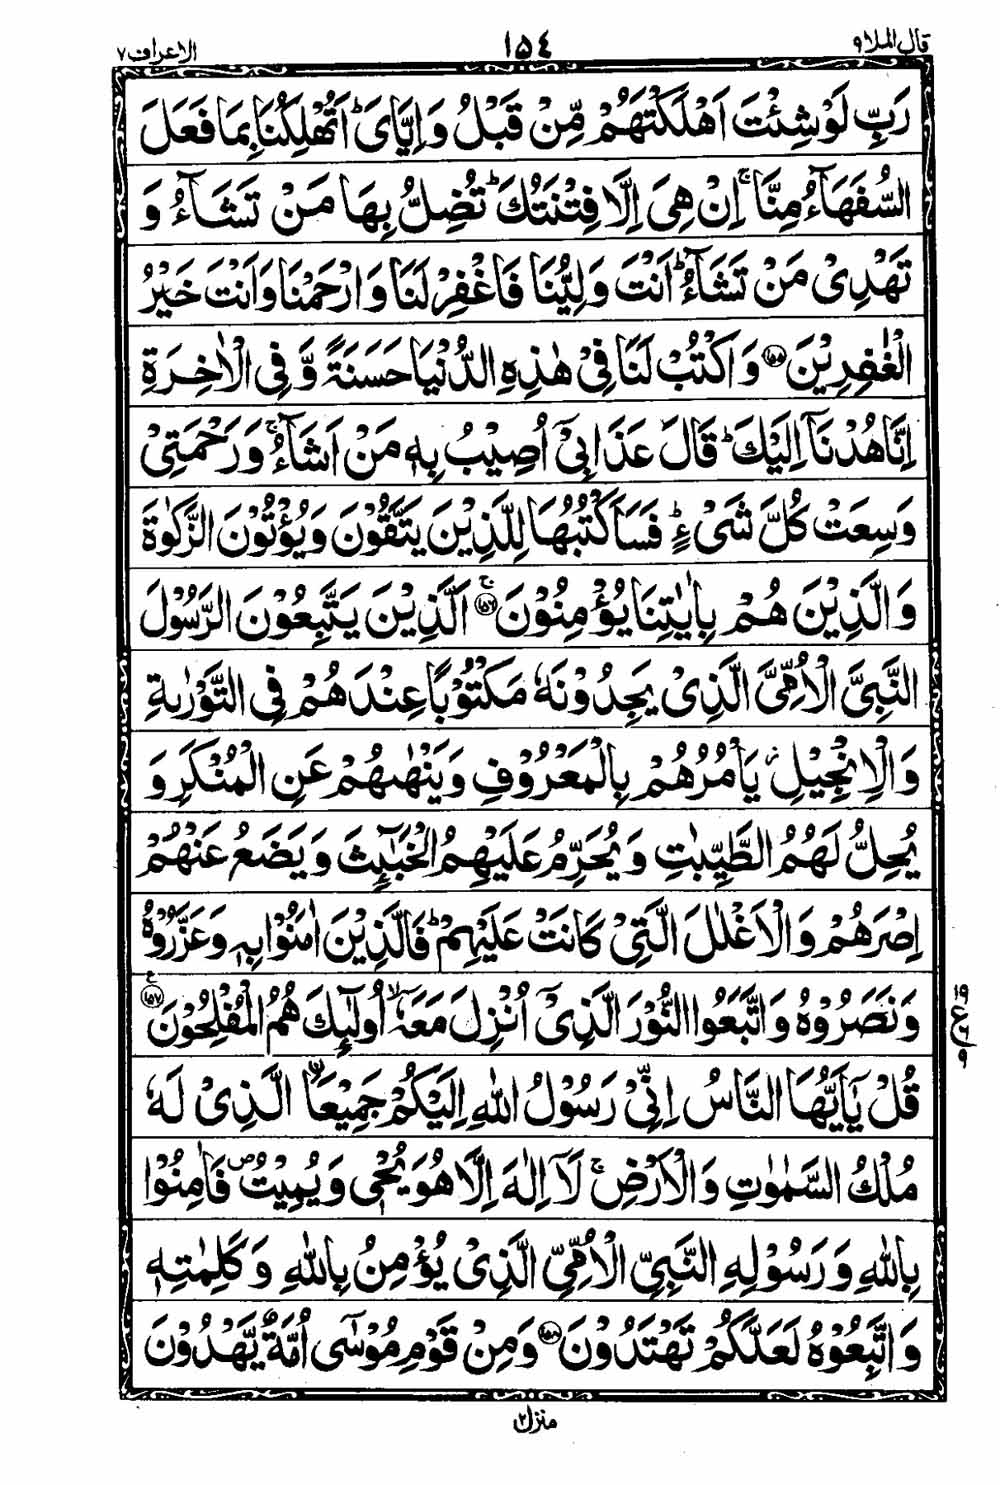 قال الملا ٩ ١٥٤ الاعراف ٧
رَبِّ لَوْ شِئْتَ اَهْلَكْتَهُمْ مِّنْ قَبْلُ وَ اِيَّايَ ؕ اَتُهْلِكُنَا بِمَا فَعَلَ
السُّفَهَآءُ مِنَّا ۚ اِنْ هِيَ اِلَّا فِتْنَتُكَ ؕ تُضِلُّ بِهَا مَنْ تَشَآءُ وَ
تَهْدِيْ مَنْ تَشَآءُ ؕ اَنْتَ وَلِيُّنَا فَاغْفِرْ لَنَا وَ ارْحَمْنَا وَ اَنْتَ خَيْرُ
الْغٰفِرِيْنَ ﴿۱۵۵﴾ وَ اكْتُبْ لَنَا فِيْ هٰذِهِ الدُّنْيَا حَسَنَةً وَّ فِي الْاٰخِرَةِ
اِنَّا هُدْنَاۤ اِلَيْكَ ؕ قَالَ عَذَابِيْۤ اُصِيْبُ بِهٖ مَنْ اَشَآءُ ۚ وَ رَحْمَتِيْ
وَسِعَتْ كُلَّ شَيْءٍ ؕ فَسَاَكْتُبُهَا لِلَّذِيْنَ يَتَّقُوْنَ وَ يُؤْتُوْنَ الزَّكٰوةَ
وَ الَّذِيْنَ هُمْ بِاٰيٰتِنَا يُؤْمِنُوْنَ ﴿۱۵۶﴾ ۚ اَلَّذِيْنَ يَتَّبِعُوْنَ الرَّسُوْلَ
النَّبِيَّ الْاُمِّيَّ الَّذِيْ يَجِدُوْنَهٗ مَكْتُوْبًا عِنْدَهُمْ فِي التَّوْرٰىةِ
وَ الْاِنْجِيْلِ ۫ يَاْمُرُهُمْ بِالْمَعْرُوْفِ وَ يَنْهٰىهُمْ عَنِ الْمُنْكَرِ وَ
يُحِلُّ لَهُمُ الطَّيِّبٰتِ وَ يُحَرِّمُ عَلَيْهِمُ الْخَبٰٓئِثَ وَ يَضَعُ عَنْهُمْ
اِصْرَهُمْ وَ الْاَغْلٰلَ الَّتِيْ كَانَتْ عَلَيْهِمْ ؕ فَالَّذِيْنَ اٰمَنُوْا بِهٖ وَ عَزَّرُوْهُ
وَ نَصَرُوْهُ وَ اتَّبَعُوا النُّوْرَ الَّذِيْۤ اُنْزِلَ مَعَهٗۤ ۙ اُولٰٓئِكَ هُمُ الْمُفْلِحُوْنَ ﴿۱۵۷﴾ ع
قُلْ يٰۤاَيُّهَا النَّاسُ اِنِّيْ رَسُوْلُ اللّٰهِ اِلَيْكُمْ جَمِيْعَا الَّذِيْ لَهٗ
مُلْكُ السَّمٰوٰتِ وَ الْاَرْضِ ۚ لَاۤ اِلٰهَ اِلَّا هُوَ يُحْيٖ وَ يُمِيْتُ ۪ فَاٰمِنُوْا
بِاللّٰهِ وَ رَسُوْلِهِ النَّبِيِّ الْاُمِّيِّ الَّذِيْ يُؤْمِنُ بِاللّٰهِ وَ كَلِمٰتِهٖ
وَ اتَّبِعُوْهُ لَعَلَّكُمْ تَهْتَدُوْنَ ﴿۱۵۸﴾ وَ مِنْ قَوْمِ مُوْسٰۤى اُمَّةٌ يَّهْدُوْنَ
منزل ٢